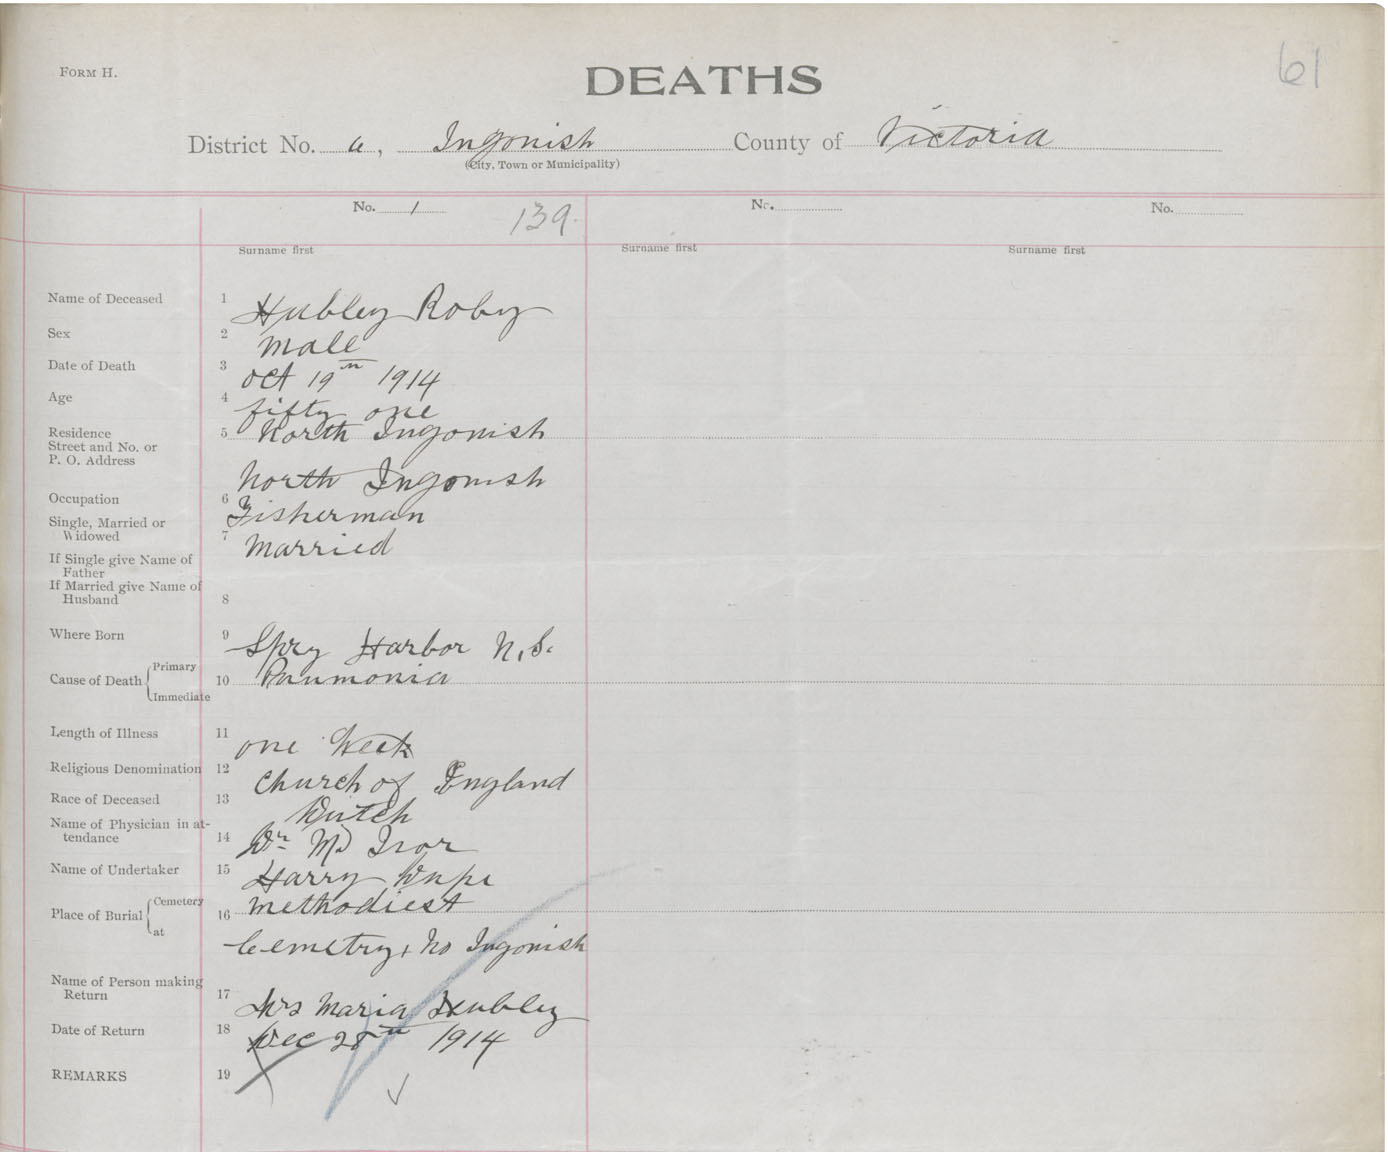 FORM H.
DEATHS
61
District No. 6, Ingonish County of Victoria
(City, Town or Municipality)
No. 1 139. No. No.
Surname first Surname first Surname first
Name of Deceased 1 Hubley Roby
Sex 2 male
Date of Death 3 oct 19th 1914
Age 4 fifty one
Residence 5 North Ingonish
Street and No. or
P. O. Address
North Ingonish
Occupation 6 Fisherman
Single, Married or
Widowed 7 Married
If Single give Name of
Father
If Married give Name of
Husband 8
Where Born 9 Spry Harbor N.S.
Cause of Death Primary
10 Pnumonia
Immediate
Length of Illness 11 one Week
Religious Denomination 12 Church of England
Race of Deceased 13 Dutch
Name of Physician in at-
tendance 14 Dr
Name of Undertaker 15 Harry
Place of Burial Cemetery
16 Methodiest
at
Cemetry, No Ingonish
Name of Person making
Return 17 Mrs Maria Hubley
Date of Return 18 Dec 1914
REMARKS 19